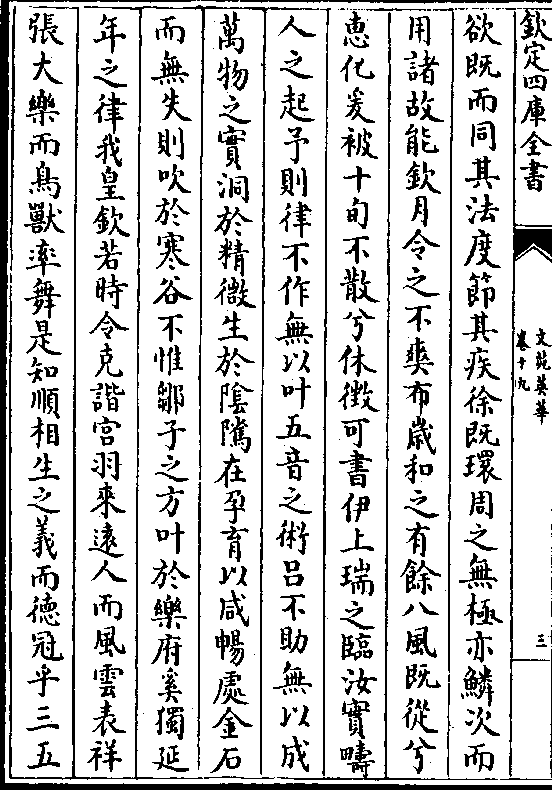 欽定四庫全書
文苑英華
卷十九
三
欲既而同其法度節其疾徐既環周之無極亦鱗次而
用諸故能欽月令之不爽布歲和之有餘八風既從兮
惠化爰被十旬不散兮休徴可書伊上瑞之臨汝實疇
人之起予則律不作無以叶五音之術呂不助無以成
萬物之實洞於精微生於陰隲在孕育以咸暢處金石
而無失則吹於寒谷不惟鄒子之方叶於樂府奚獨延
年之律我皇欽若時令克諧宫羽來遠人而風雲表祥
張大樂而鳥獸率舞是知順相生之義而德冠乎三五